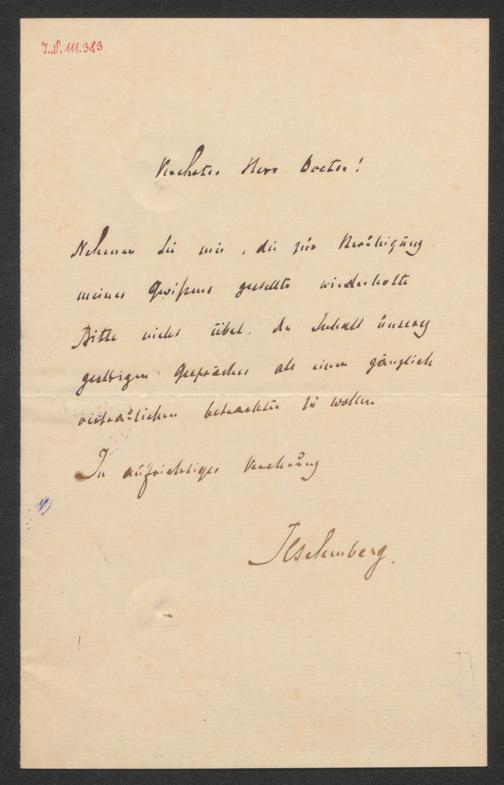 J.N. 111.383
Verehrter Herr Doctor!
Nehmen Sie mir, die zur Beruhigung
meines Gewißens gestellte wiederholte
Bitte nicht übel, den Inhalt unseres
gestrigen Gespräches als einen gänzlich
vertraulichen betrachten zu wollen.
In aufrichtiger Verehrung